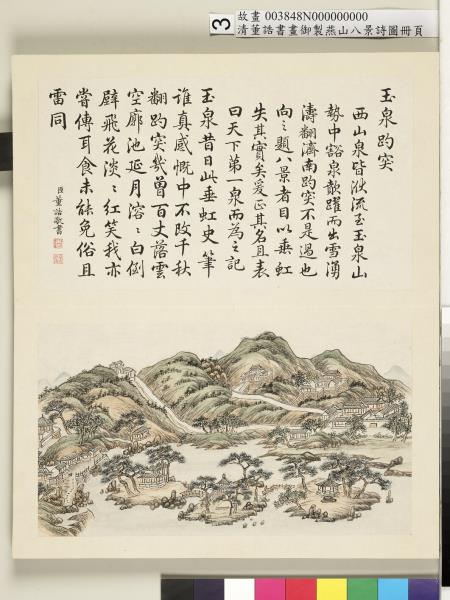 3
故畫 003848N000000000
清董誥書畫御製燕山八景詩圖冊頁
玉泉趵突
西山泉皆洑流至玉泉山
勢中豁泉歕躍而出雪湧
濤翻濟南趵突不是過也
向之題八景者目以垂虹
失其實矣爰正其名且表
曰天下第一泉而為之記
玉泉昔日此垂虹史筆
誰真感慨中不改千秋
翻趵突幾曾百丈落雲
空廊池延月溶〻白倒
壁飛花淡〻紅笑我亦
嘗傳耳食未能免俗且
雷同
臣董誥敬書